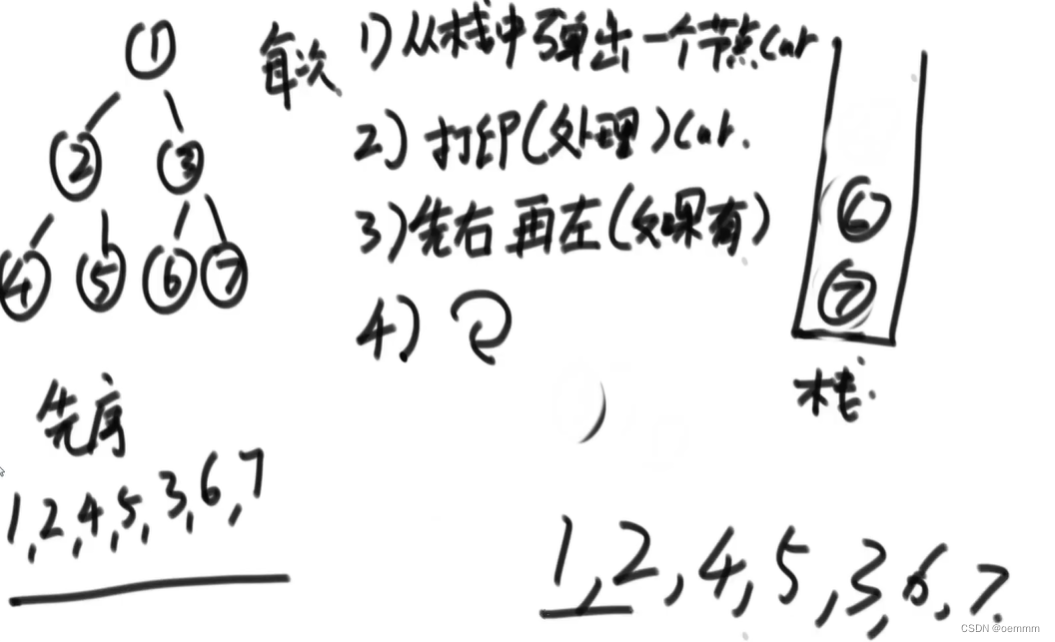 1
2 3
4 5 6 7
先序
1,2,4,5,3,6,7
每次
1) 从栈中弹出一个节点cur
2) 打印(处理)cur.
3) 先右再左(如果有)
4)
6
7
栈
1,2,4,5,3,6,7.
CSDN @oemmm